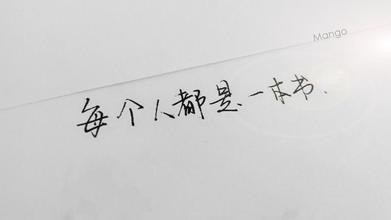 Mango
每个人都是一本书、